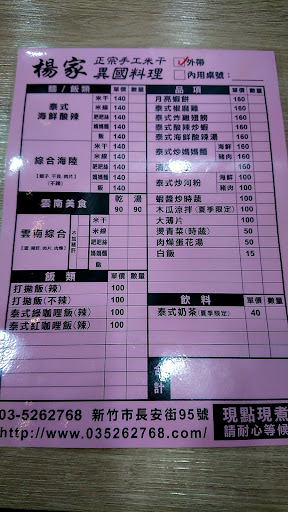 楊家 正宗手工米干 異國料理
☑外帶
□內用桌號：
麵/飯類 單價 數量
泰式海鮮酸辣
米干 140
米線 140
粑粑絲 140
媽媽麵 140
飯 140
綜合海陸
(蝦子,干貝,肉片)
(不辣)
米干 140
米線 140
粑粑絲 140
媽媽麵 140
飯 140
雲南美食 乾 湯 數量
90 90
雲南綜合
米干
米線
粑粑絲
媽媽麵
飯
飯類 單價 數量
打拋飯(辣) 100
打拋飯(不辣) 100
泰式綠咖哩飯(辣) 100
泰式紅咖哩飯(辣) 100
品項 單價 數量
月亮蝦餅 160
泰式椒麻雞 160
泰式炸雞翅膀 160
泰式酸辣炒蝦 160
泰式海鮮酸辣湯 160
泰式炒媽媽麵 海鮮 160
豬肉 160
160
泰式炒河粉 海鮮 160
豬肉 160
蝦醬炒時蔬 100
木瓜涼拌(夏季限定) 100
大薄片 100
燙青菜(時蔬) 50
肉燥蛋花湯 50
白飯 15
飲料 單價 數量
泰式奶茶(夏季限定) 40
合計
03-5262768 新竹市長安街95號
http://www.035262768.com/
現點現煮
請耐心等候